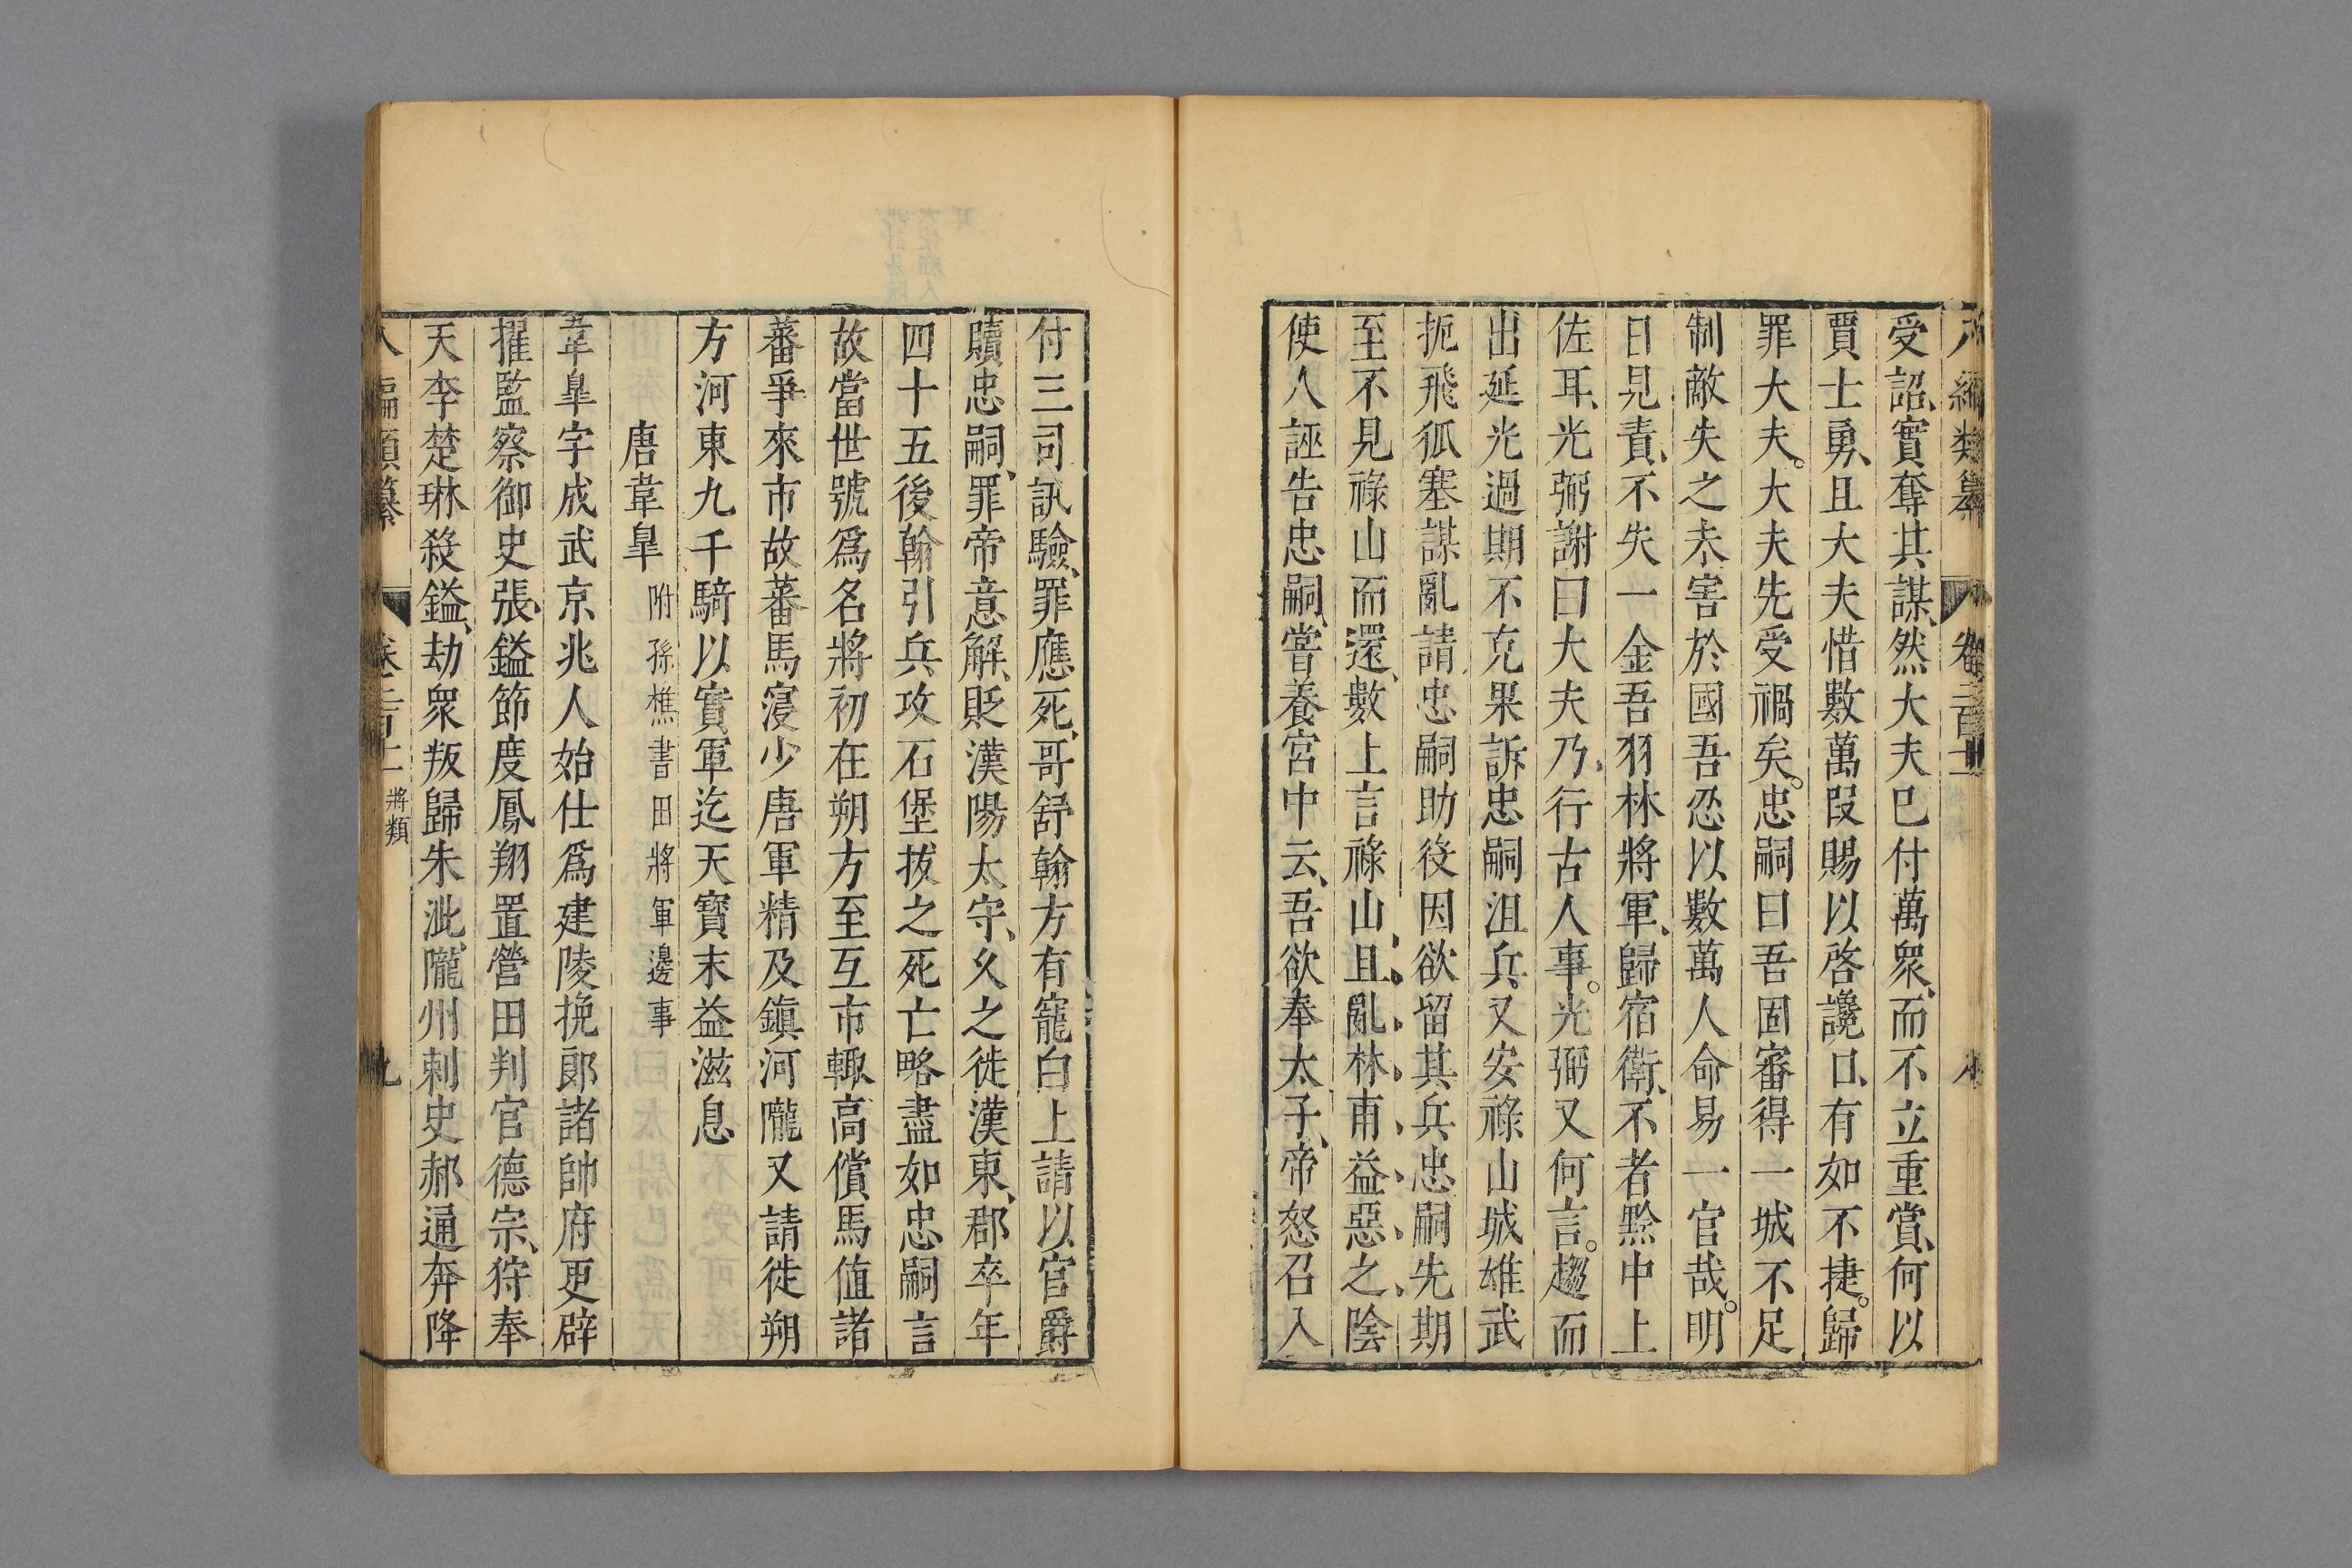 受詔、實奪其謀、然大夫已付萬衆、而不立重賞、何以
賈士勇、且大夫惜數萬段賜以啓讒口、有如不捷。歸
罪大夫。大夫先受禍矣。忠嗣曰吾固審得一城不足
制敵失之未害於國吾忍以數萬人命易一官哉。明
日見責、不失一金吾羽林將軍、歸宿衛、不者黔中上
佐耳、光弼謝曰大夫乃、行古人事。光弼又何言。趨而
出延光過期不克果訴忠嗣沮兵、又安祿山城雄武
扼飛狐塞謀亂請忠嗣助役因欲留其兵忠嗣先期
至不見祿山而還、數上言祿山、且、亂、林、甫、益、惡、之、陰
使人誣告忠嗣、嘗養宮中云、吾欲奉太子、帝怒召入
付三司訊驗、罪應死、哥舒翰方有寵白上請以官爵
贖忠嗣、罪帝意解、貶漢陽太守、久之徙漢東、郡卒年
四十五後翰引兵攻石堡拔之死亡略盡如忠嗣言
故當世號爲名將初在朔方至互市輒高償馬值諸
蕃爭來市故蕃馬寖少唐軍精及鎭河隴又請徙朔
方河東九千騎以實軍迄天寶末益滋息
唐韋臯 附孫樵書田將軍邊事
韋臯字成武京兆人始仕爲建陵挽郞諸帥府更辟
擢監察御史張、鎰節度鳳翔置營田判官德宗、狩奉
天李楚琳殺鎰、劫衆叛歸朱泚、隴州刺史郝通奔降
將類